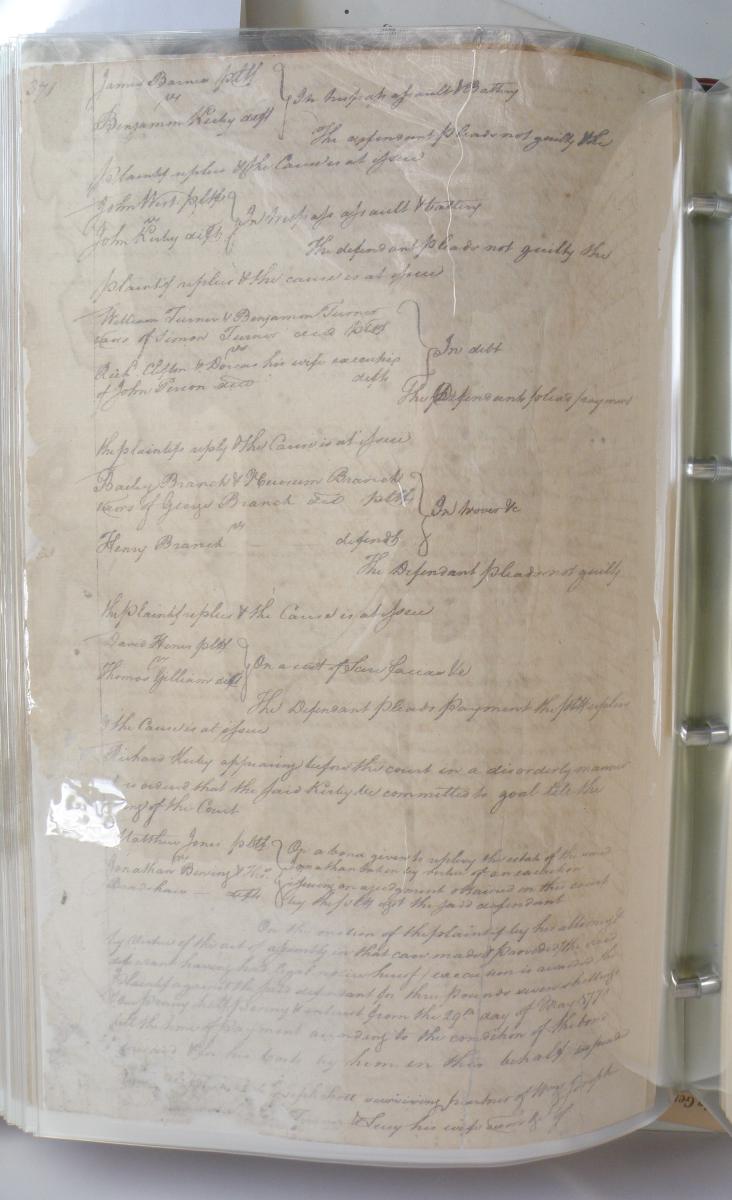 371
James Barnes pltf
vs
Benjamin Kirby deft
In trespass assault & Battery
The defendant pleads not guilty & the
plaintif replies & the Cause is at issue
John West pltf
vs
John Kirby deft
In trespass assault & battery
The defendant pleads not guilty the
plaintif replies & the cause is at issue
William Turner & Benjamin Turner
exors of Simon Turner decd pltf
vs
Richd. Clifton & Dorcas his wife executrix
of John Person decd defts
In debt
The Defendants plead payment
the plaintifs reply & the Cause is at issue
Bailey Branch & Branch
exors of George Branch decd pltfs
vs
Henry Branch defendt
In trover &c
The Defendant pleads not guilty
the plaintif replies & the Cause is at issue
David Hines pltf
vs
Thomas Gilliam deft
On a writ of Scire facias &c
The Defendant pleads payment the pltf replies
& the Cause is at issue
Richard Kirby appearing before the court in a disorderly manner
is ordered that the said Kirby be committed to goal till the
of the Court
Matthew Jones pltf
vs
Jonathan & Thos.
Bradshaw defts
On a bond given to replevy the estate of the said
Jonathan taken by virtue of an execution
issuing on a judgment obtained in this court
by the pltf agt the said defendant
On the motion of the plaintif by his attorney
by virtue of the act of assembly in that case made & provided the said
defendant having had legal notice hereof execution is awarded the
Plaintif against the said defendant for three Pounds seven shillings
& one penny half penny & interest from the 29th day of May 1771
till the time of payment according to the condition of the bond
& for his Costs by him in this behalf expended
Joseph Scott surviving partner of
Turner & Lucy his wife